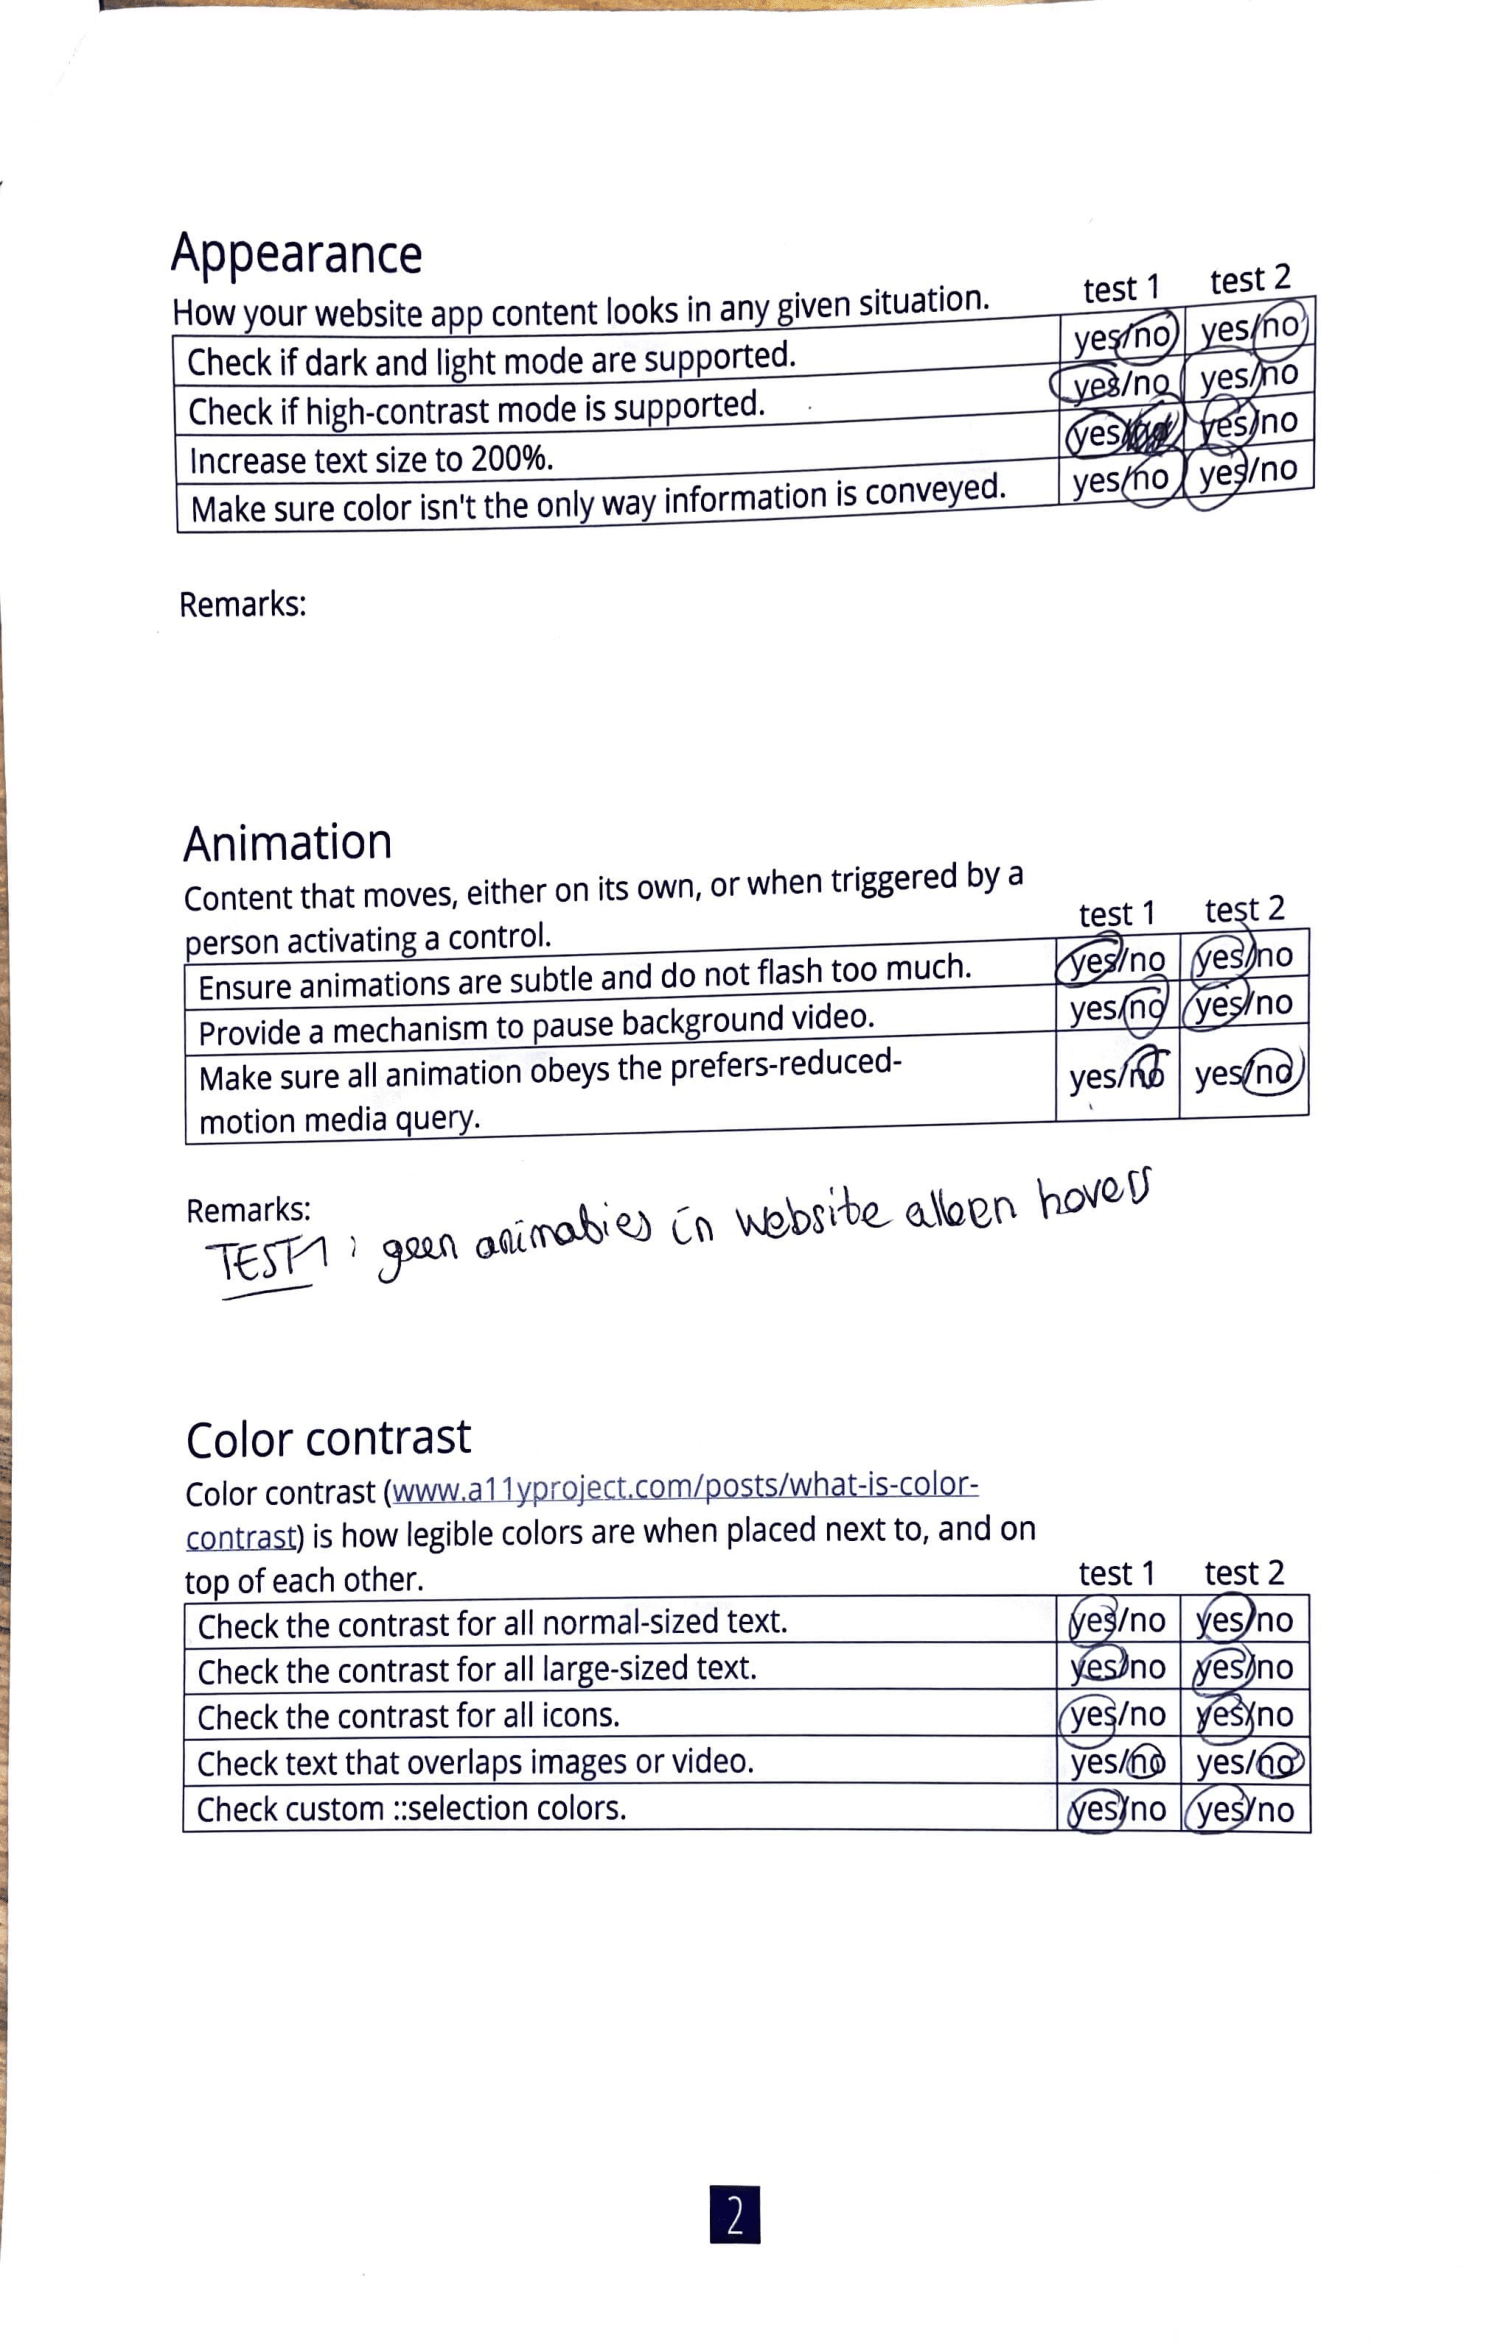 Appearance
How your website app content looks in any given situation.
test 1 test 2
Check if dark and light mode are supported. yes/no yes/no
Check if high-contrast mode is supported. yes/no yes/no
Increase text size to 200%. yes/ yes/no
Make sure color isn't the only way information is conveyed. yes/no yes/no
Remarks:
Animation
Content that moves, either on its own, or when triggered by a
person activating a control.
test 1 test 2
Ensure animations are subtle and do not flash too much. yes/no yes/no
Provide a mechanism to pause background video. yes/no yes/no
Make sure all animation obeys the prefers-reduced-
motion media query. yes/no yes/no
Remarks:
TEST 1: geen animaties in website alleen hovers
Color contrast
Color contrast (www.a11yproject.com/posts/what-is-color-
contrast) is how legible colors are when placed next to, and on
top of each other.
test 1 test 2
Check the contrast for all normal-sized text. yes/no yes/no
Check the contrast for all large-sized text. yes/no yes/no
Check the contrast for all icons. yes/no yes/no
Check text that overlaps images or video. yes/no yes/no
Check custom ::selection colors. yes/no yes/no
2